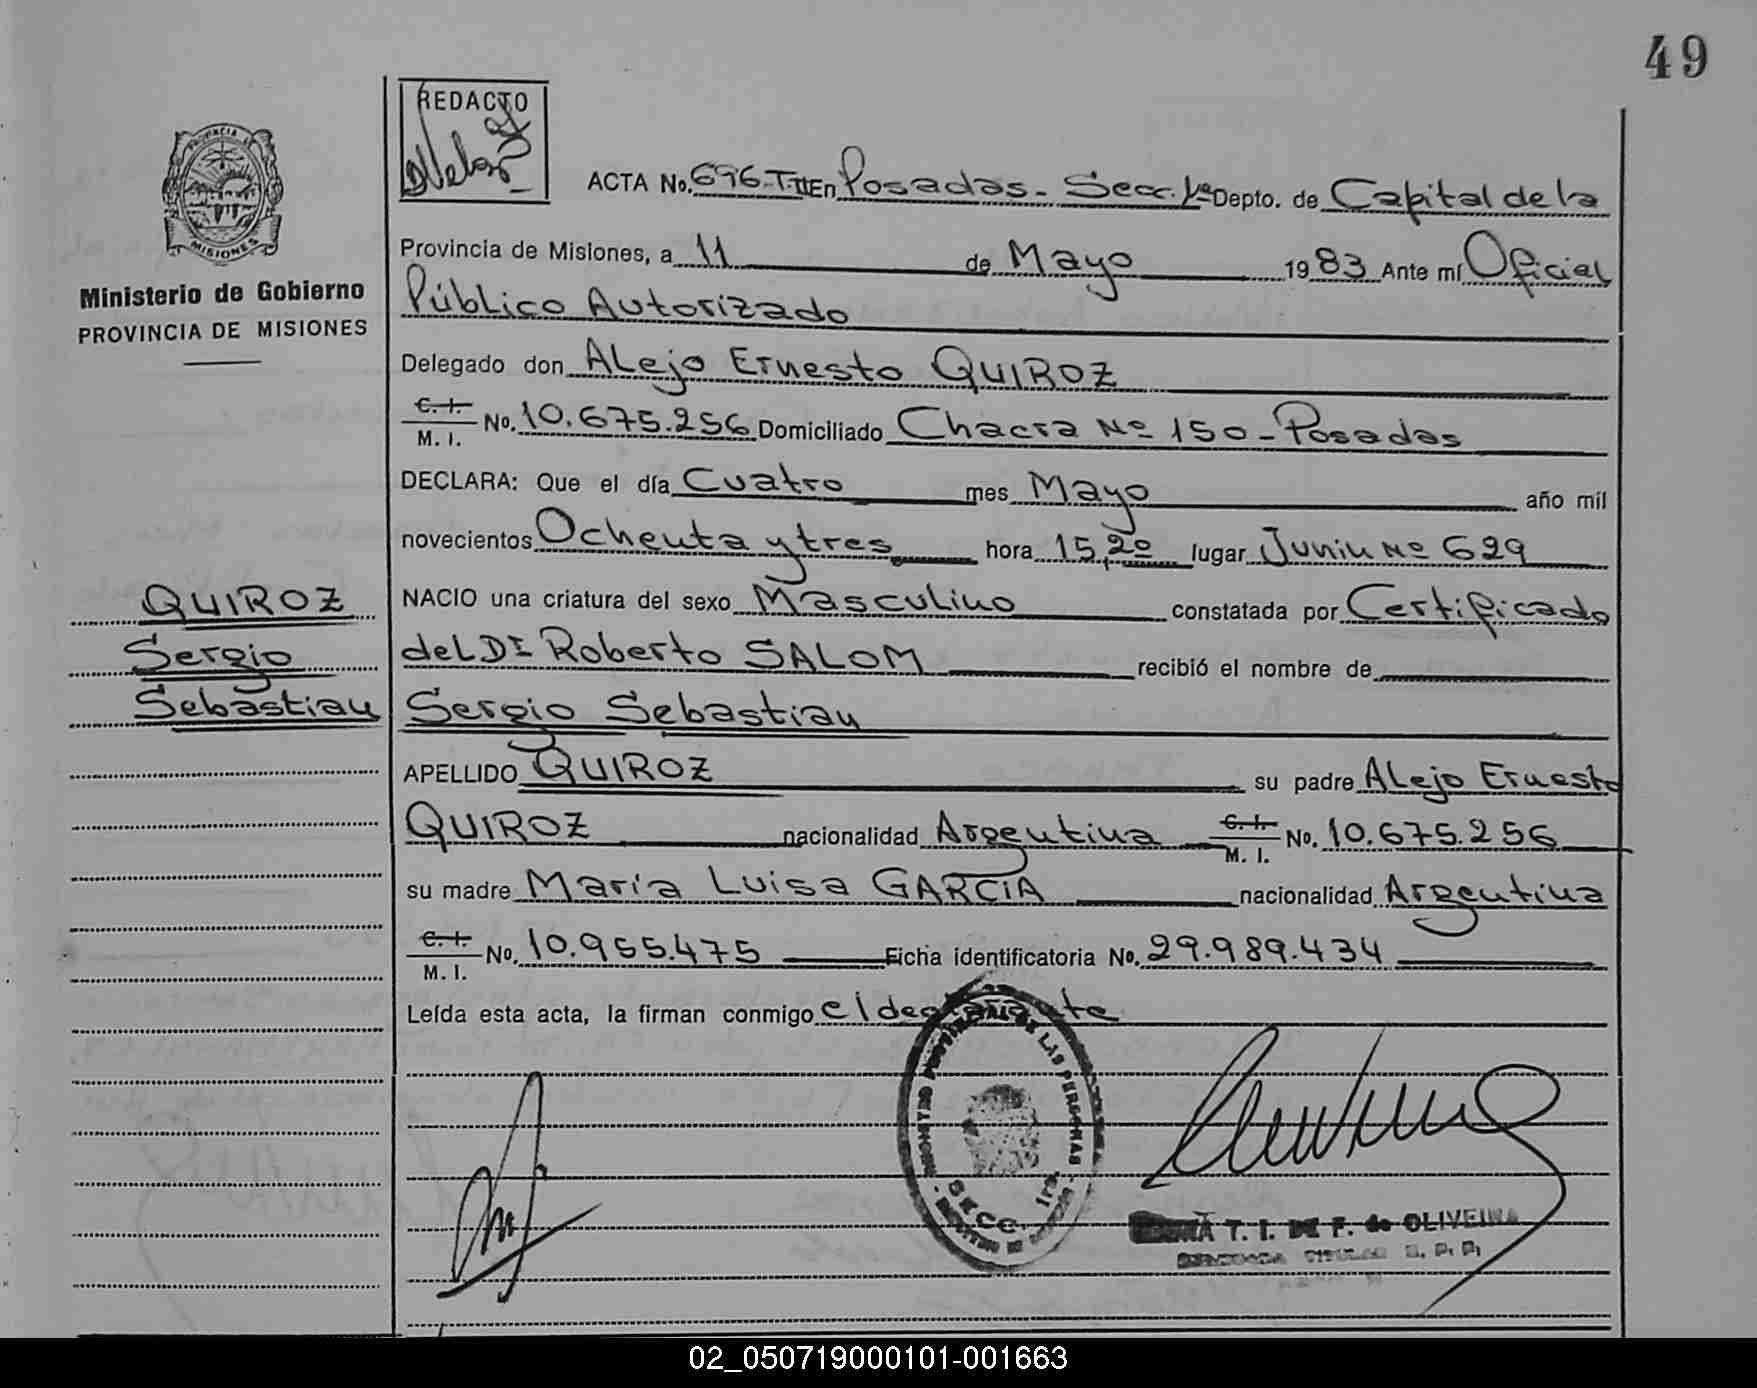 49
REDACTO
ACTA No. 696-T-II En Posadas - Secc. 1ª Depto. de Capital de la
Provincia de Misiones, a 11 de Mayo 1983 Ante mí Oficial
Público Autorizado
Ministerio de Gobierno
PROVINCIA DE MISIONES
Delegado don Alejo Ernesto QUIROZ
C. I.
M. I. No. 10.675.256 Domiciliado Chacra Nº 150 - Posadas
DECLARA: Que el día Cuatro mes Mayo año mil
novecientos Ochenta y tres hora 15,20 lugar Junin Nº 629
NACIO una criatura del sexo Masculino constatada por Certificado
del Dr Roberto SALOM recibió el nombre de
Sergio Sebastian
QUIROZ
Sergio
Sebastian
APELLIDO QUIROZ su padre Alejo Ernesto
QUIROZ nacionalidad Argentina C. I. M. I. No. 10.675.256
su madre María Luisa GARCIA nacionalidad Argentina
C. I.
M. I. No. 10.955.475 Ficha identificatoria No. 29.989.434
Leída esta acta, la firman conmigo el declarante
REGISTRO PROVINCIAL DE LAS PERSONAS
SECC. 1ra.
T. I. DE F. de OLIVEIRA
02_050719000101-001663